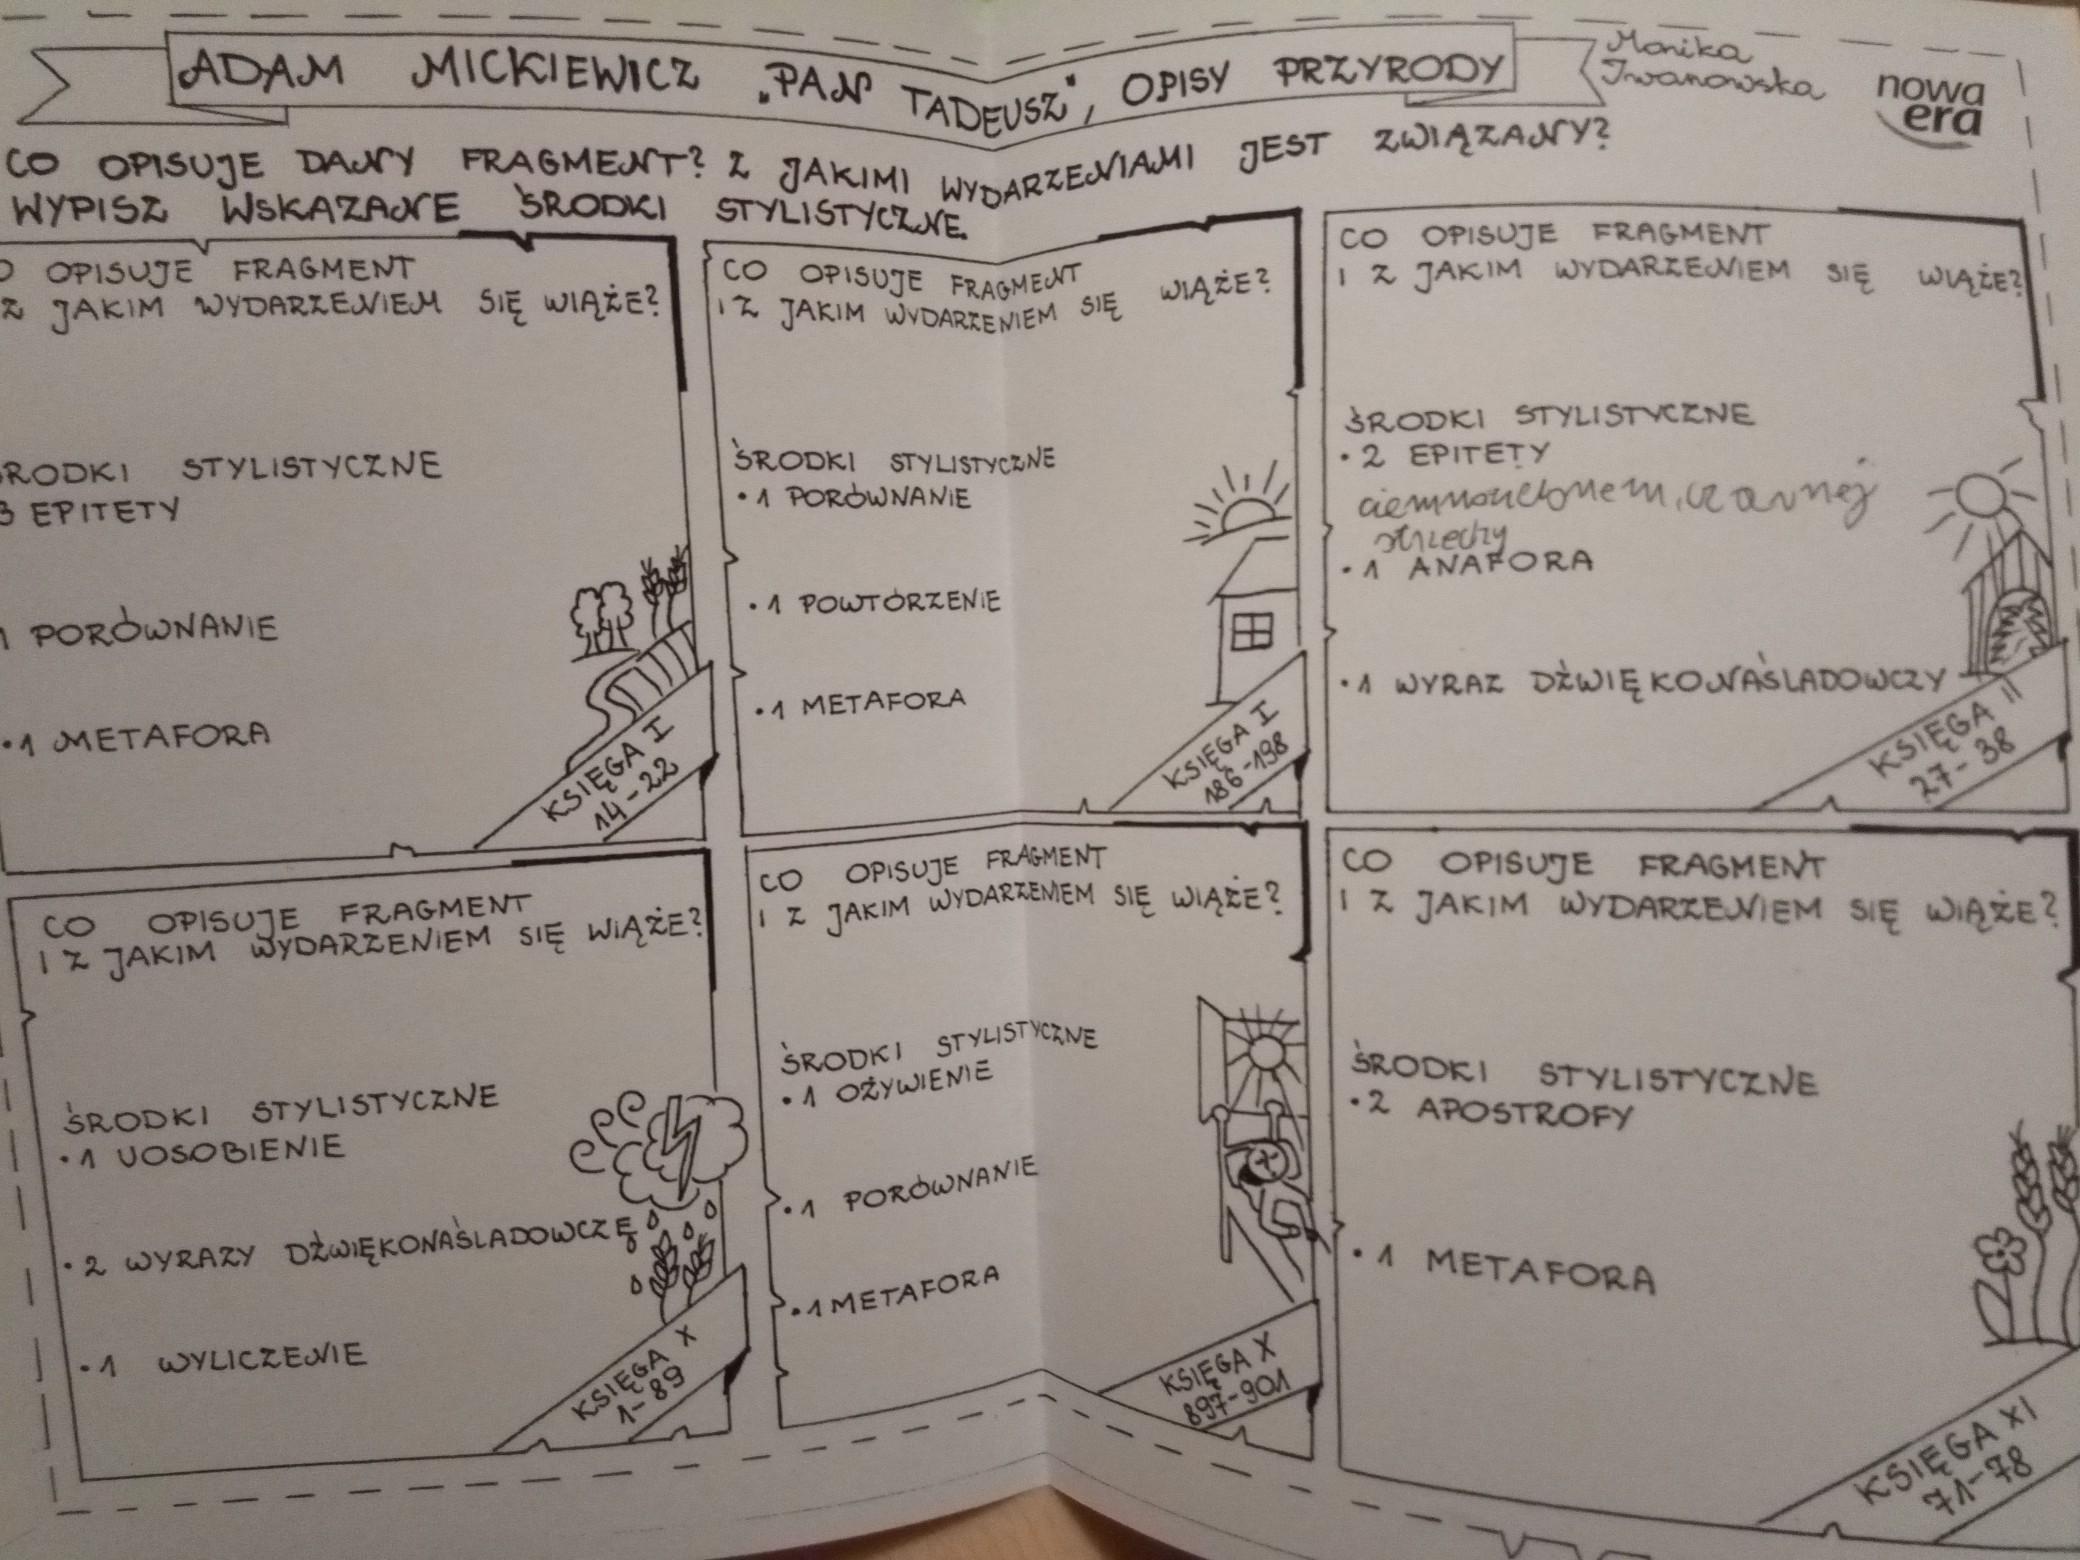 ADAM MICKIEWICZ „PAN TADEUSZ", OPISY PRZYRODY
Monika
Iwanowska
nowa
era
CO OPISUJE DANY FRAGMENT? Z JAKIMI WYDARZENIAMI JEST ZWIĄZANY?
WYPISZ WSKAZANE ŚRODKI STYLISTYCZNE.
O OPISUJE FRAGMENT
Z JAKIM WYDARZENIEM SIĘ WIĄŻE?
RODKI STYLISTYCZNE
3 EPITETY
1 PORÓWNANIE
•1 METAFORA
KSIĘGA I
14-22
CO OPISUJE FRAGMENT
I Z JAKIM WYDARZENIEM SIĘ WIĄŻE?
ŚRODKI STYLISTYCZNE
•1 PORÓWNANIE
•1 POWTÓRZENIE
•1 METAFORA
KSIĘGA I
186-198
CO OPISUJE FRAGMENT
I Z JAKIM WYDARZENIEM SIĘ WIĄŻE?
ŚRODKI STYLISTYCZNE
•2 EPITETY
ciemnozielonem, czarnej
strzechy
•1 ANAFORA
•1 WYRAZ DŹWIĘKONAŚLADOWCZY
KSIĘGA II
27-38
CO OPISUJE FRAGMENT
I Z JAKIM WYDARZENIEM SIĘ WIĄŻE?
ŚRODKI STYLISTYCZNE
•1 UOSOBIENIE
•2 WYRAZY DŹWIĘKONAŚLADOWCZE
•1 WYLICZENIE
KSIĘGA X
1-89
CO OPISUJE FRAGMENT
I Z JAKIM WYDARZENIEM SIĘ WIĄŻE?
ŚRODKI STYLISTYCZNE
•1 OŻYWIENIE
•1 PORÓWNANIE
•1 METAFORA
KSIĘGA X
897-901
CO OPISUJE FRAGMENT
I Z JAKIM WYDARZENIEM SIĘ WIĄŻE?
ŚRODKI STYLISTYCZNE
•2 APOSTROFY
•1 METAFORA
KSIĘGA XI
71-78